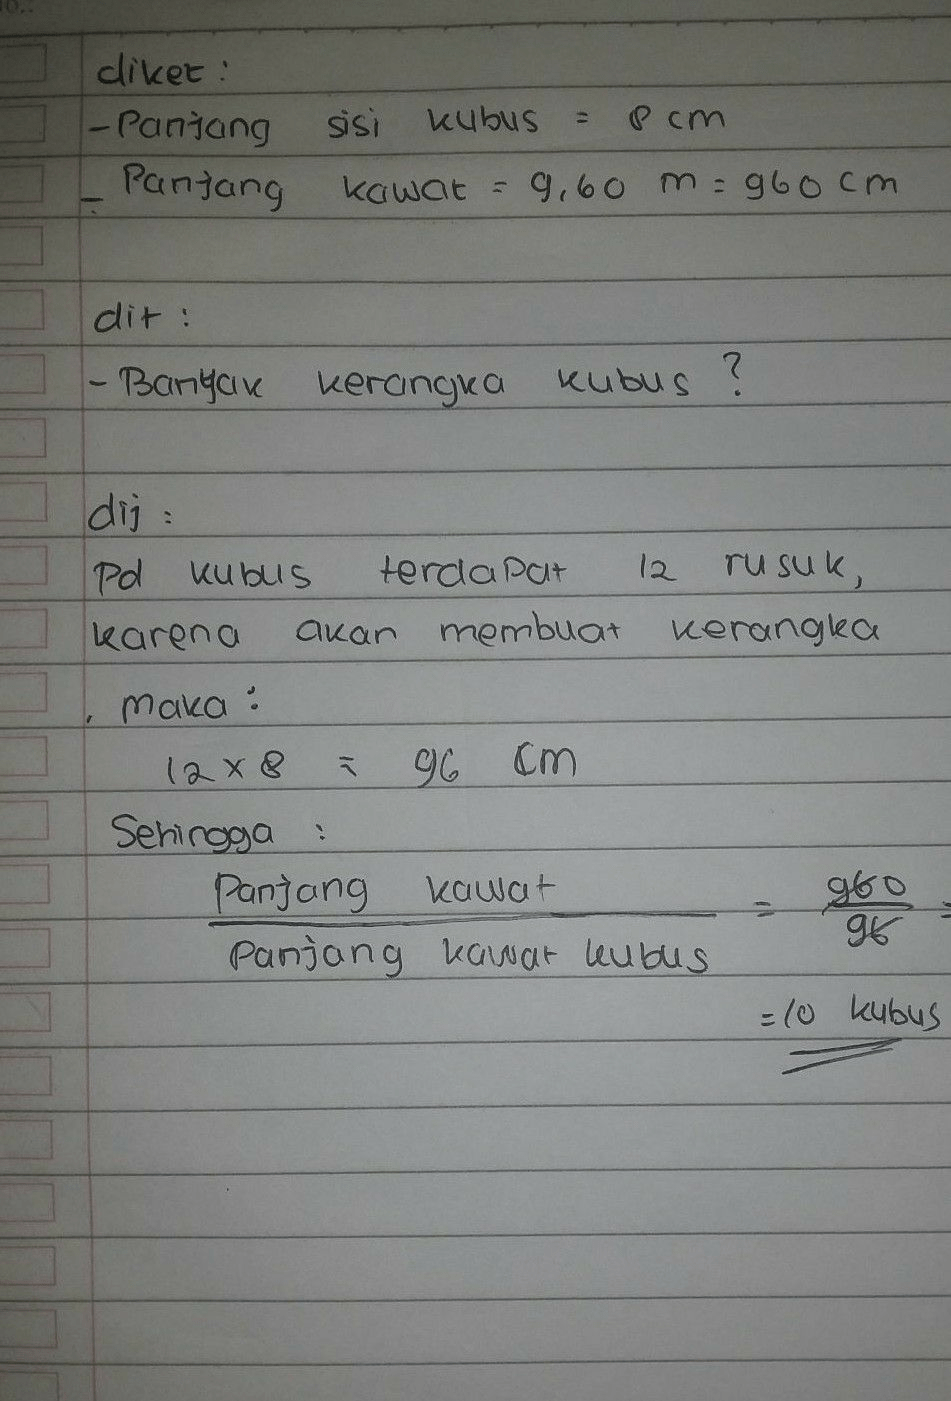 diket :
- Panjang sisi kubus = 8 cm
- Panjang kawat = 9,60 m = 960 cm
dit :
- Banyak kerangka kubus ?
dij :
Pd kubus terdapat 12 rusuk,
karena akan membuat kerangka
, maka :
12 × 8 = 96 cm
Sehingga :
Panjang kawat / Panjang kawat kubus = 960 / 96 =
= 10 kubus